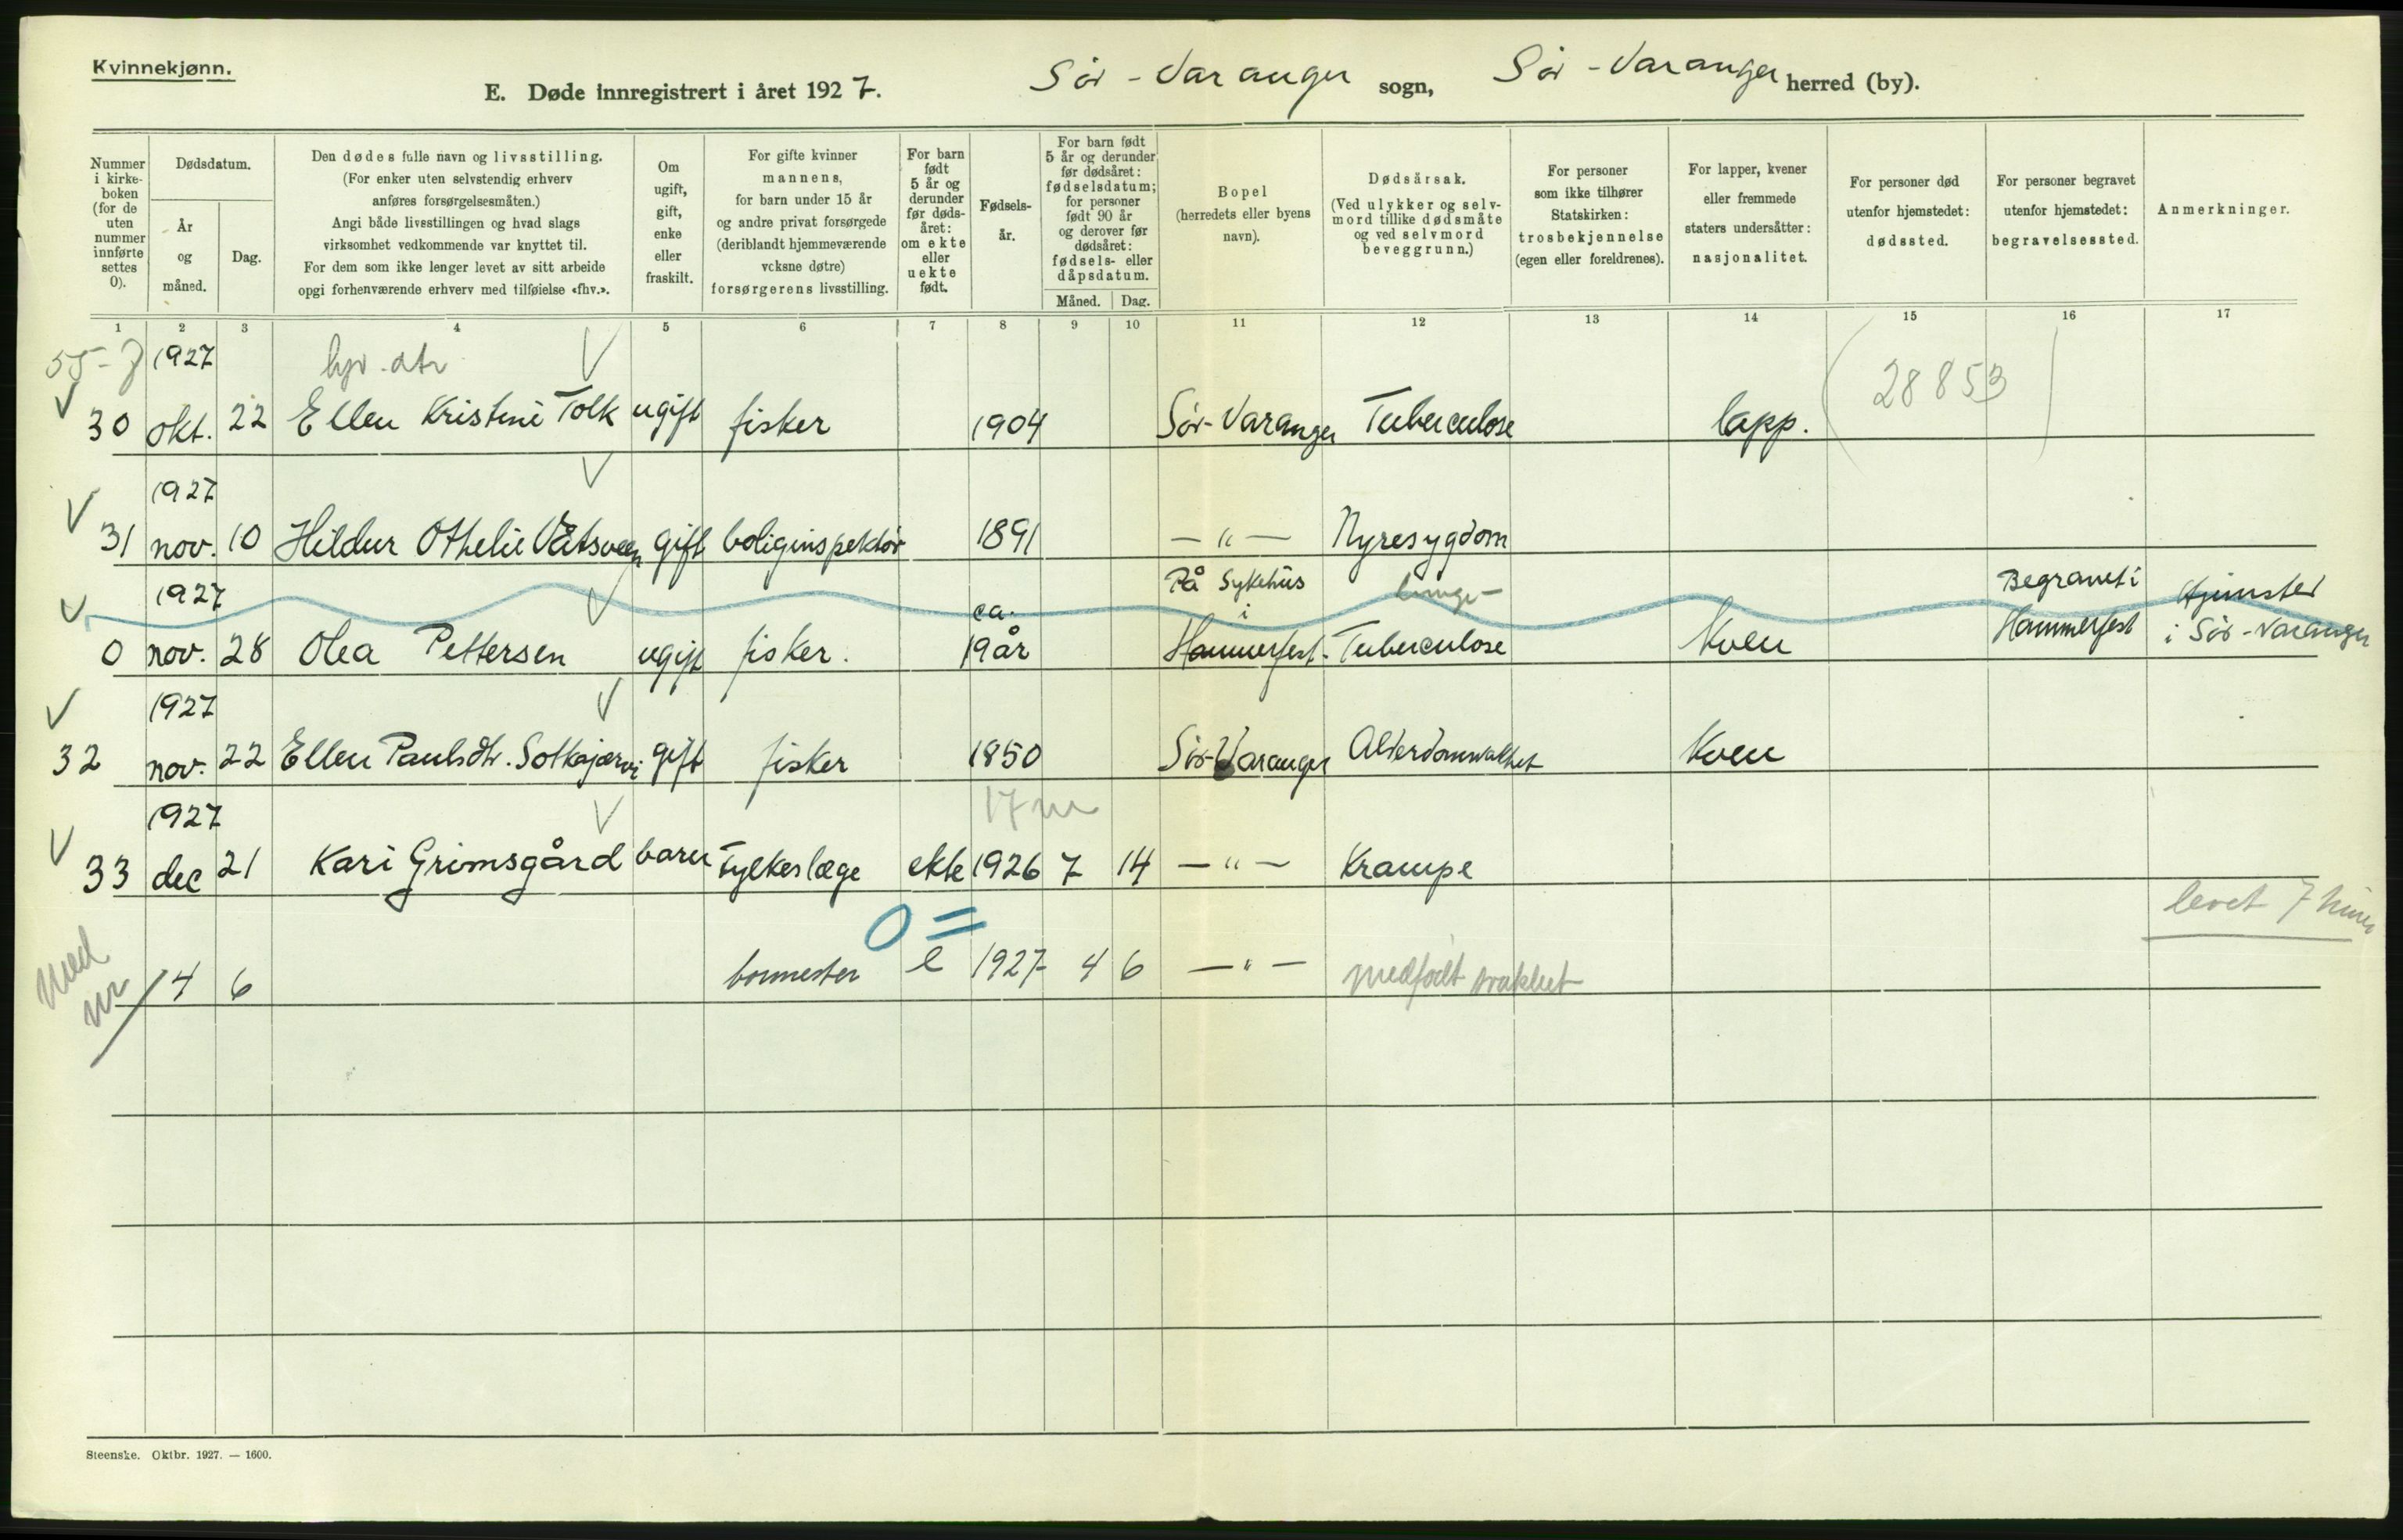 Kvinnekjønn.
E. Døde innregistrert i året 1927. Sør-Varanger sogn, Sør-Varanger herred (by).
Nummer i kirkeboken (for de uten nummer innførte settes 0).
Dødsdatum.
År og måned.
Dag.
Den dødes fulle navn og livsstilling.
(For enker uten selvstendig erhverv
anføres forsørgelsesmåten.)
Angi både livsstillingen og hvad slags
virksomhet vedkommende var knyttet til.
For dem som ikke lenger levet av sitt arbeide
opgi forhenværende erhverv med tilføielse «fhv.».
Om ugift, gift, enke eller fraskilt.
For gifte kvinner
mannens,
for barn under 15 år
og andre privat forsørgede
(deriblandt hjemmeværende
vcksne døtre)
forsørgerens livsstilling.
For barn født 5 år og derunder før dødsåret: om ekte eller uekte født.
Fødselsår.
For barn født 5 år og derunder før dødsåret: fødselsdatum; for personer født 90 år og derover før dødsåret: fødsels- eller dåpsdatum.
Måned. Dag.
Bopel
(herredets eller byens
navn).
Dødsårsak.
(Ved ulykker og selvmord tillike dødsmåte og ved selvmord beveggrunn.)
For personer
som ikke tilhører
Statskirken:
trosbekjennelse
(egen eller foreldrenes).
For lapper, kvener
eller fremmede
staters undersåtter:
nasjonalitet.
For personer død
utenfor hjemstedet:
dødssted.
For personer begravet
utenfor hjemstedet:
begravelsessted.
Anmerkninger.
1 2 3 4 5 6 7 8 9 10 11 12 13 14 15 16 17
1927 hjv. dtr (28853)
30 okt. 22 Ellen Kristine Tolk ugift fisker 1904 Sør-Varanger Tuberculose lapp.
1927
31 nov. 10 Hildur Othelie Våtsveen gift boliginspektør 1891 — " — Nyresygdom
1927 ca. På Sykehus i lunge- Begravet i Hjemsted
0 nov. 28 Olea Pettersen ugift fisker. 19 år Hammerfest. Tuberculose Kven Hammerfest i Sør-Varanger
1927
32 nov. 22 Ellen Paulsdtr. Sotkajærvi gift fisker 1850 Sør-Varanger Alderdomsvakhet Kven
1927 17 m
33 dec 21 Kari Grimsgård barn Fylkeslæge ekte 1926 7 14 — " — Krampe
levet 7 timer
med nr 4 6 e 1927 4 6 — " — medfødt svakhet
Steenske. Oktbr. 1927. — 1600.